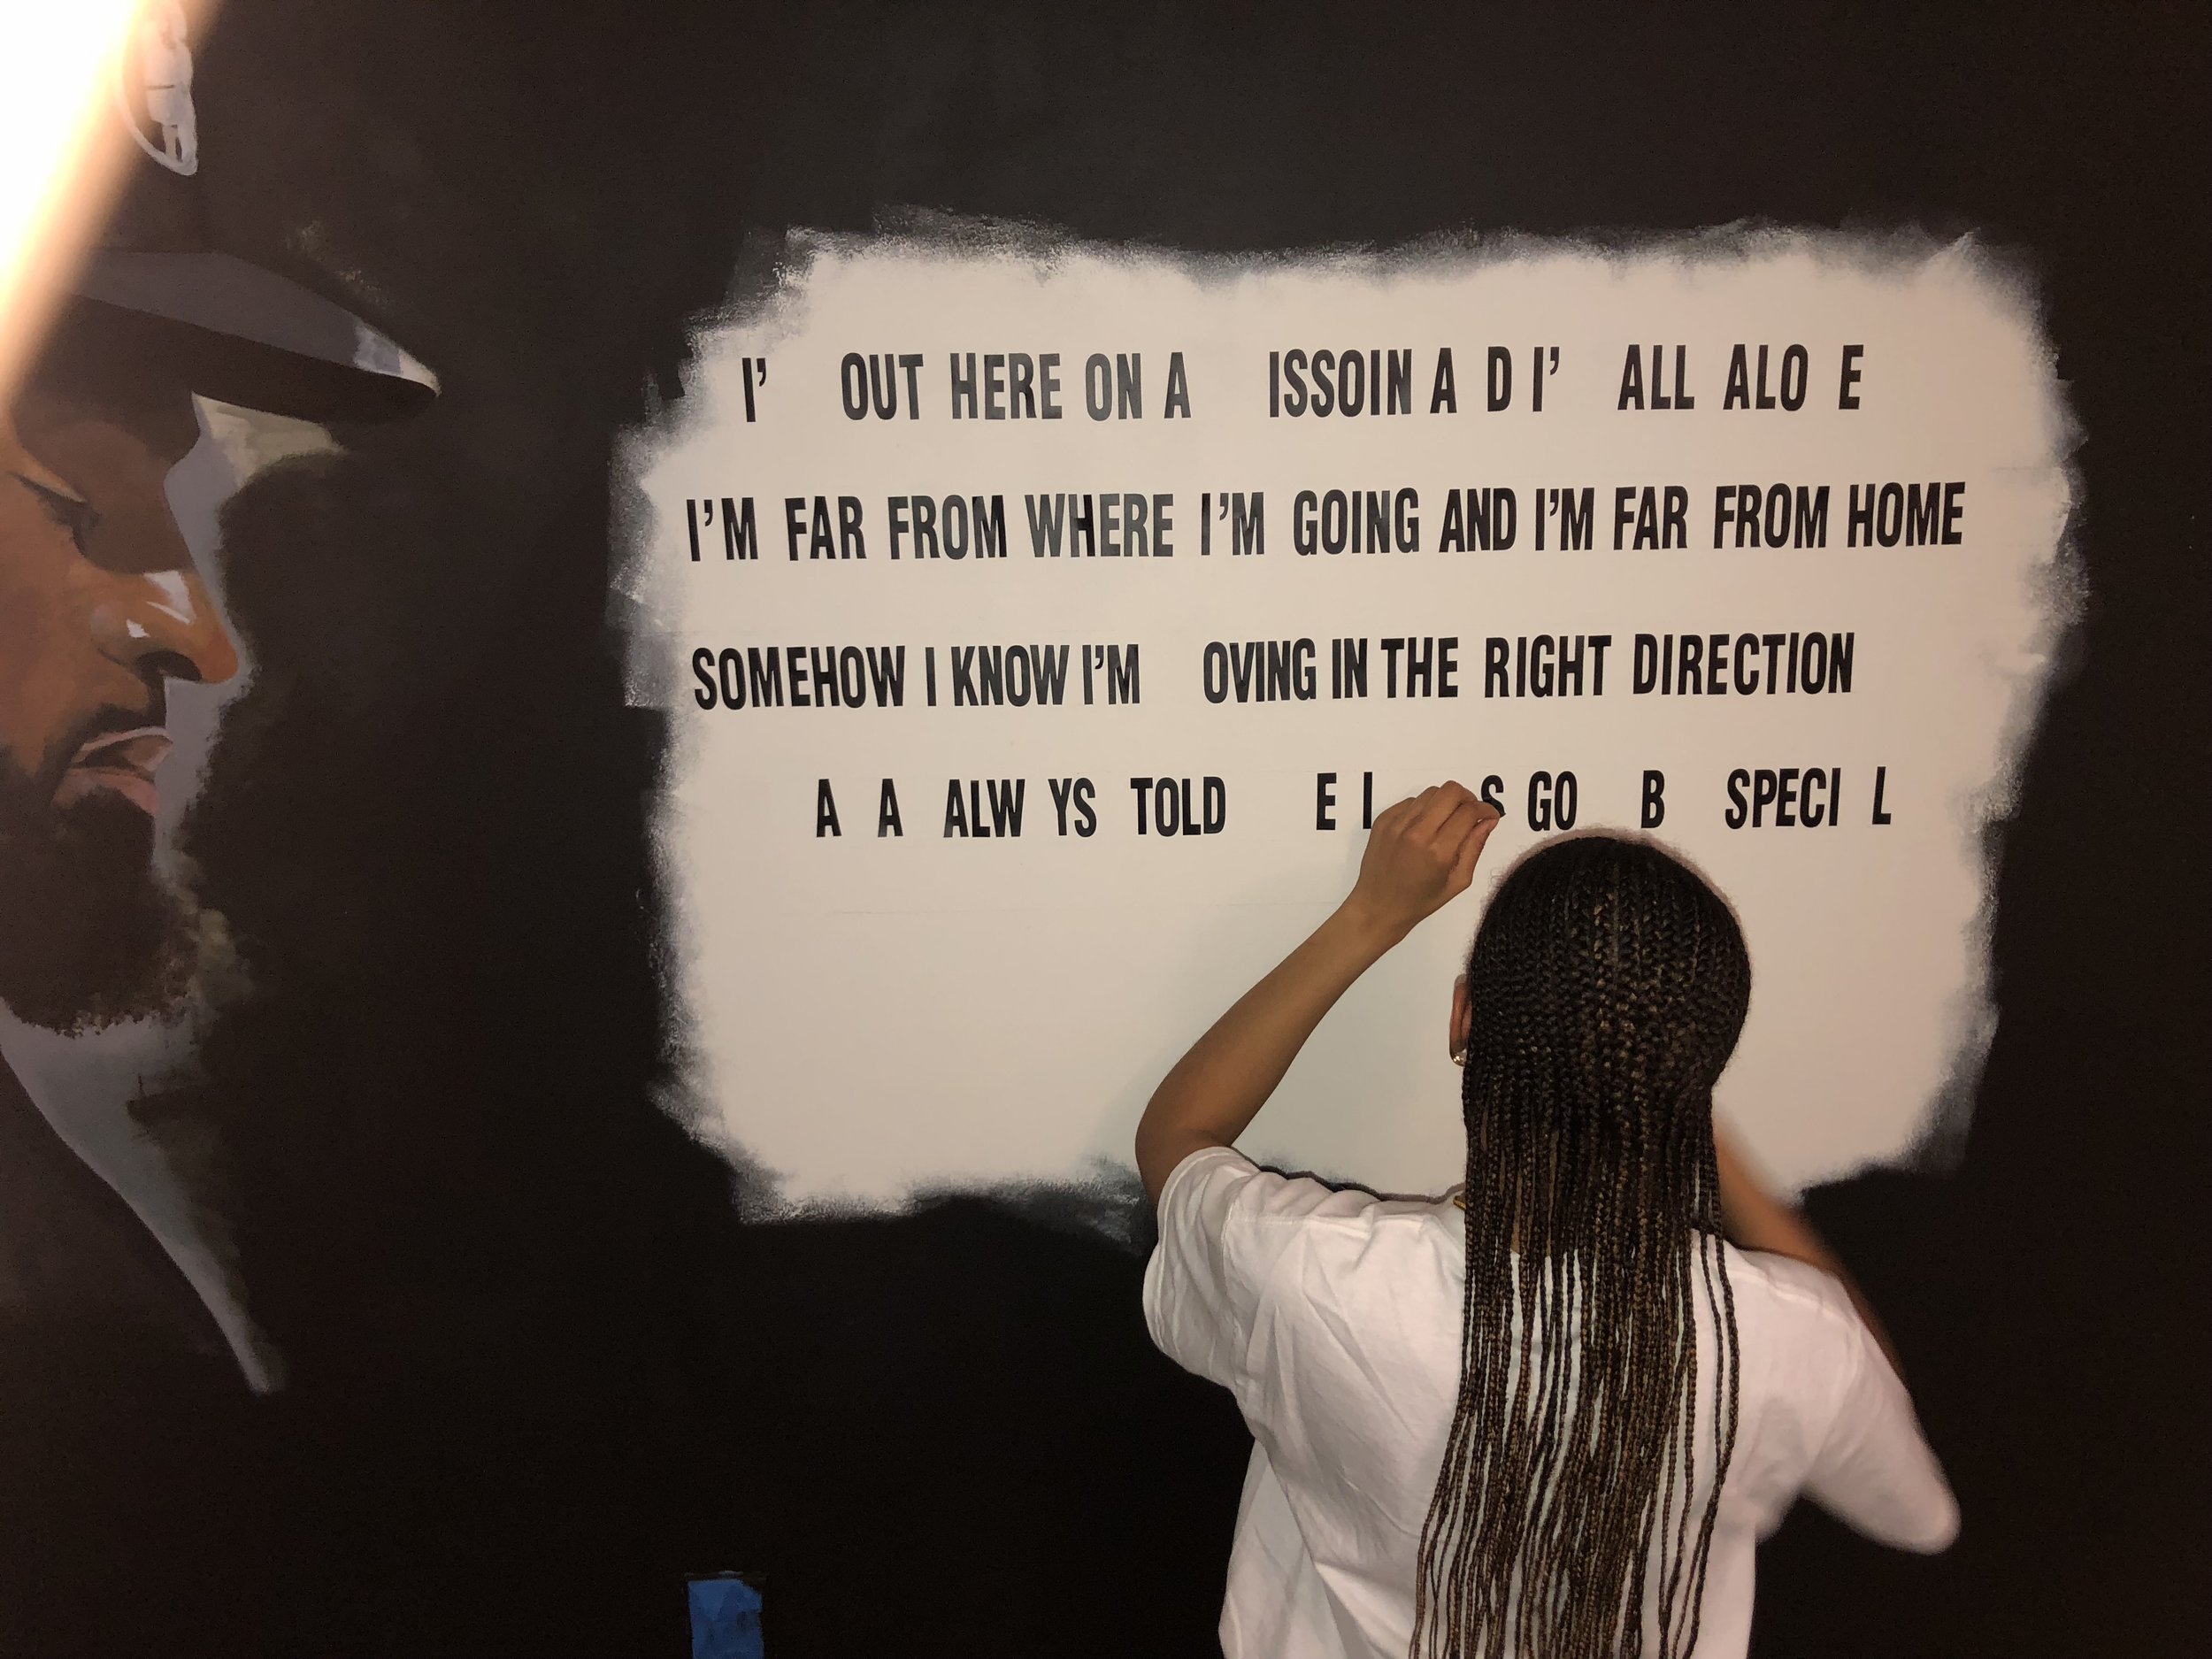 I' OUT HERE ON A ISSOIN A D I' ALL ALO E
I'M FAR FROM WHERE I'M GOING AND I'M FAR FROM HOME
SOMEHOW I KNOW I'M OVING IN THE RIGHT DIRECTION
A A ALW YS TOLD E I S GO B SPECI L